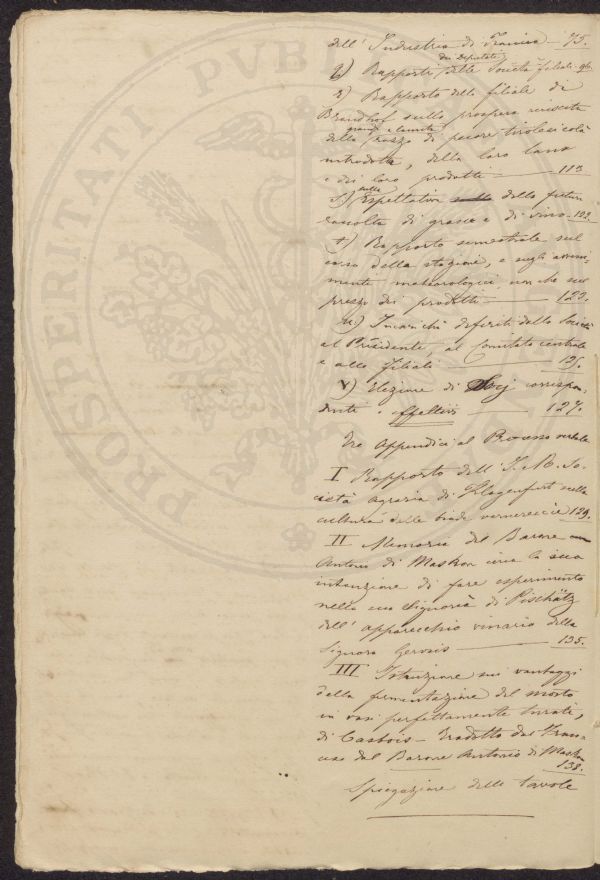 dell' Industria di Francia — 75.
q) Rapporti delle Società filiali 96.
dei Deputati
r) Rapporto della filiale di
Brandhof sulla prospera riuscita
grande e lanuta
della razza di pecore tirolesi colà
introdotte, della loro lana
e dei loro prodotti — 113
sulle
s) Espettative della futura
raccolta di grasce e di vino. 122.
t) Rapporto semestrale sul
corso della stagione, e sugli avveni-
menti meteorologici, non che sul
prezzo dei prodotti — 123.
u.) Incarichi deferiti dalla Società
al Presidente, al Comitato centrale
e alle Filiali — 125.
v) Elezione di Socj corrispon-
denti e effettivi — 127.
Tre Appendici al Processo verbale
I Rapporto dell' I. R. So-
cietà Agraria di Klagenfurt sulla
cultura delle biade vernerecce 129.
II Memoria del Barone
Antonio di Maskon circa la sua
intenzione di fare esperimento
nella sua Signoria di Pischätz
dell' apparecchio vinario della
Signora Gervais — 135.
III Istruzione sui vantaggi
della fermentazione del mosto
in vasi perfettamente turati,
di Casbois — Tradotto dal Fran-
cese dal Barone Antonio di Maskon
138.
Spiegazione delle tavole
PROSPERITATI PUBLICAE